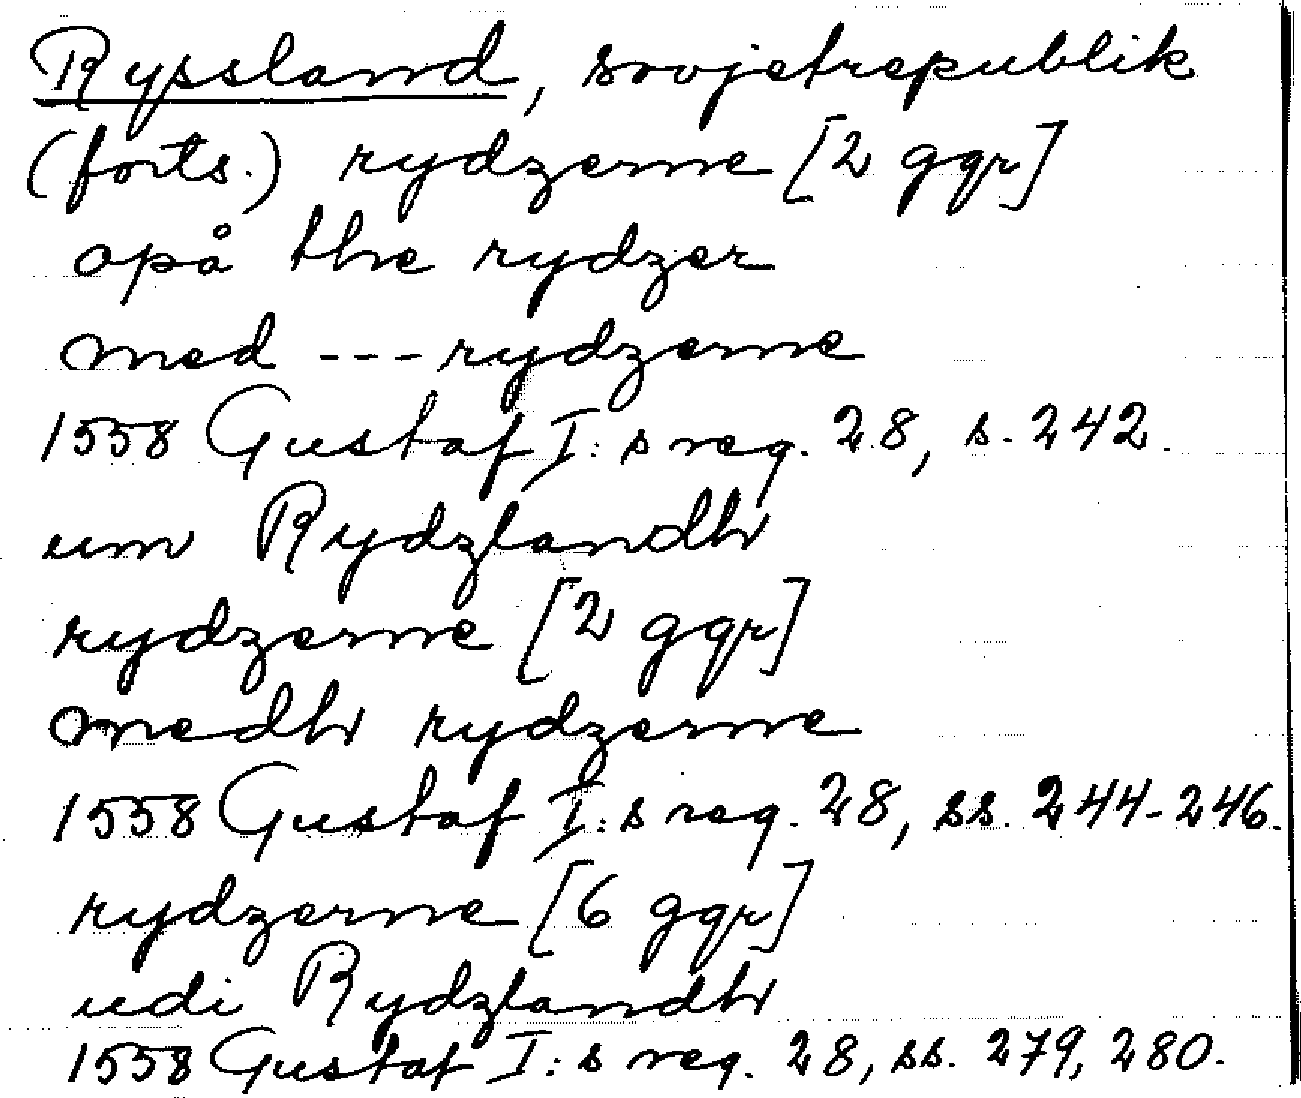 Ryssland, sovjetrepublik
(forts.) rydzerne [2 ggr]
opå the rydzer
med --- rydzerne
1558 Gustaf I:s reg. 28, s. 242.
um Rydzlandh
rydzerne [2 ggr]
medh rydzerne
1558 Gustaf I:s reg. 28, ss. 244-246.
rydzerne [6 ggr]
udi Rydzlandh
1558 Gustaf I:s reg. 28, ss. 279, 280.